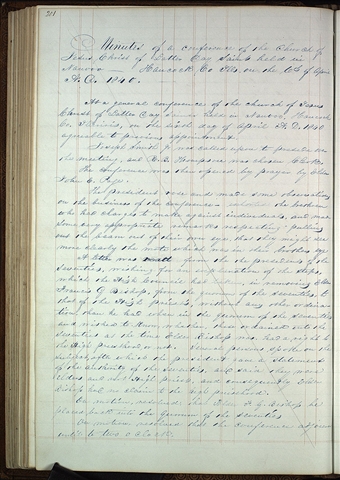 211
Minutes of a conference of the Church of
Jesus Christ of Latter Day Saints held in
Nauvoo Hancock Co Ills. on the 6th of April
A. D. 1840.
At a general conference of the church of Jesus
Christ of Latter Day Saints held in Nauvoo, Hancock
Co. Illinois, on the sixth day of April A. D. 1840
agreeable to previous appointment.
Joseph Smith jr was called upon to preside over
the meeting, and R. B. Thompson was chosen Clerk.
The conference was then opened by prayer by Elder
John E. Page.
The president rose and made some observations
on the business of the conference exhorted the brethren
who had charges to make against individuals, and made
some very appropriate remarks respecting pulling
out the beam out of their own eye that they might see
more clearly the mote which was in their brother's eye
A letter was read from the presidency of the
Seventies, wishing for an explanation of the steps,
which the High Council had taken, in removing Elder
Francis G Bishop from the quorum of the Seventies to
that of the High priests, without any other ordination
than he had when in the quorum of the seventies
and wished to know, whether, those ordained into the
seventies at the time Elder Bishop was had a right to
the High priesthood, or not
subject, after which the president gave a statement
of the authority of the Seventies, and said they were
Elders and not High priests, and consequently Elder
Bishop had no claim to the high priesthood.
On motion, resolved, that Elder F. G. Bishop be
placed back into the quorum of the seventies
On motion resolved that the conference adjourn
until to two o'clock.